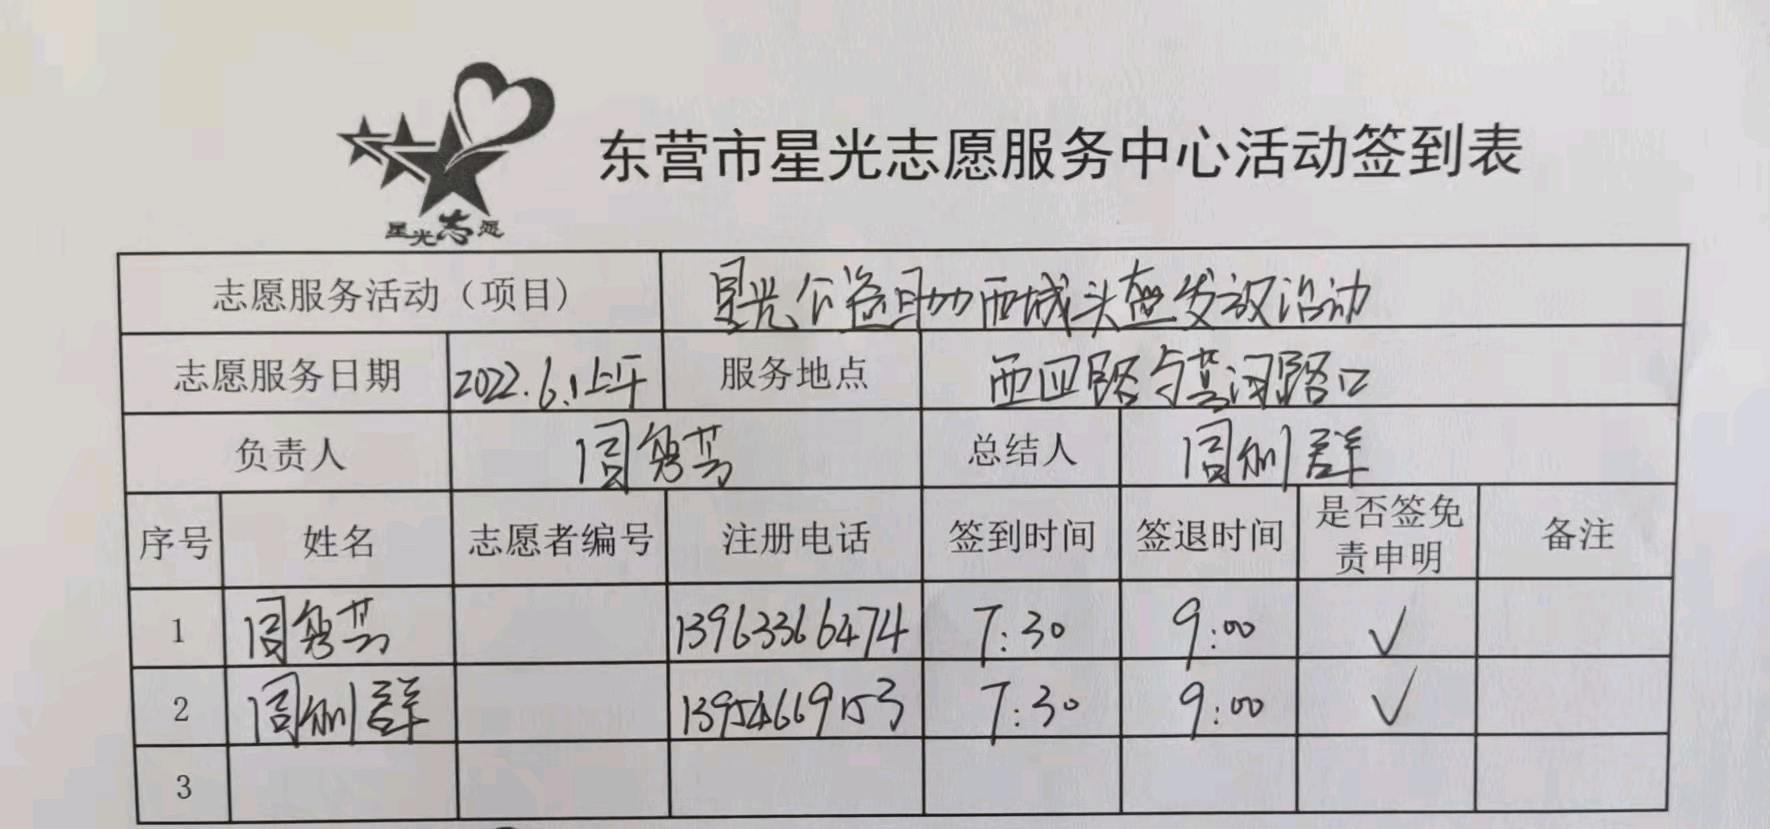 星光志愿
东营市星光志愿服务中心活动签到表
志愿服务活动（项目） 星光公益自助西城头盔发放活动
志愿服务日期 2022.6.1上午 服务地点 西四路与黄河路口
负责人 周努芳 总结人
序号 姓名 志愿者编号 注册电话 签到时间 签退时间 是否签免
责申明 备注
1 13963366474 7:30 9:00 √
2 13954669153 7:30 9:00 √
3